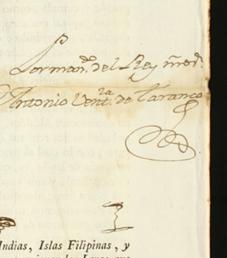 Por man.^do del Rey ñro s.^r
Antonio Ven.^ra de Taranco
Indias, Islas Filipinas, y